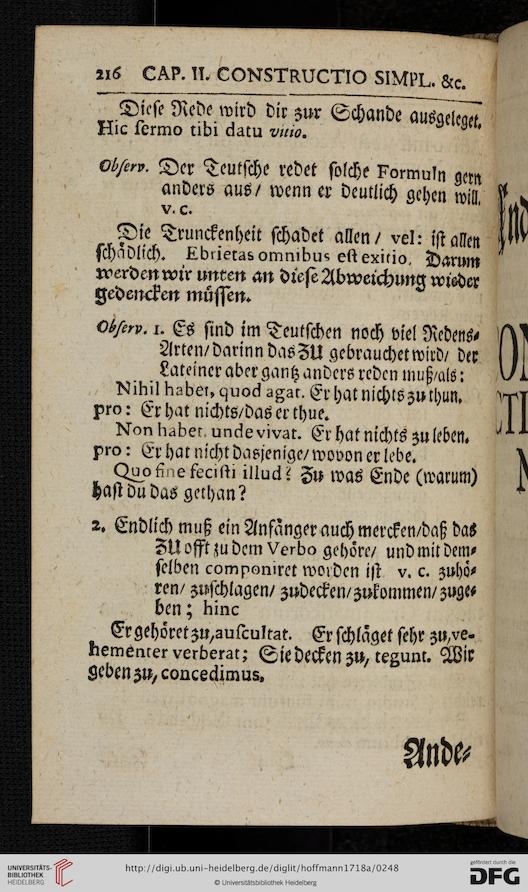 216 CAP. II. CONSTRUCTIO SIMPL. &c.
Diese Rede wird dir zur Schande ausgeleget.
Hic sermo tibi datu vitio.
Observ. Der Teutsche redet solche Formuln gern
anders aus / wenn er deutlich gehen will.
v. c.
Die Trunckenheit schadet allen / vel: ist allen
schädlich. Ebrietas omnibus est exitio. Darum
werden wir unten an diese Abweichung wieder
gedencken müssen.
Observ. 1. Es sind im Teutschen noch viel Redens-
Arten / darinn das ZU gebrauchet wird / der
Lateiner aber gantz anders reden muß / als:
Nihil habet, quod agat. Er hat nichts zu thun.
pro: Er hat nichts / das er thue.
Non habet, unde vivat. Er hat nichts zu leben.
pro: Er hat nicht dasjenige / wovon er lebe.
Quo fine fecisti illud? Zu was Ende (warum)
hast du das gethan?
2. Endlich muß ein Anfänger auch mercken / daß das
ZU offt zu dem Verbo gehöre / und mit dem-
selben componiret worden ist v. c. zuhö-
ren / zuschlagen / zudecken / zukommen / zuge-
ben; hinc
Er gehöret zu, auscultat. Er schläget sehr zu, ve-
hementer verberat; Sie decken zu, tegunt. Wir
geben zu, concedimus.
Ande-
UNIVERSITÄTS-
BIBLIOTHEK
HEIDELBERG
http://digi.ub.uni-heidelberg.de/diglit/hoffmann1718a/0248
© Universitätsbibliothek Heidelberg
gefördert durch die
DFG